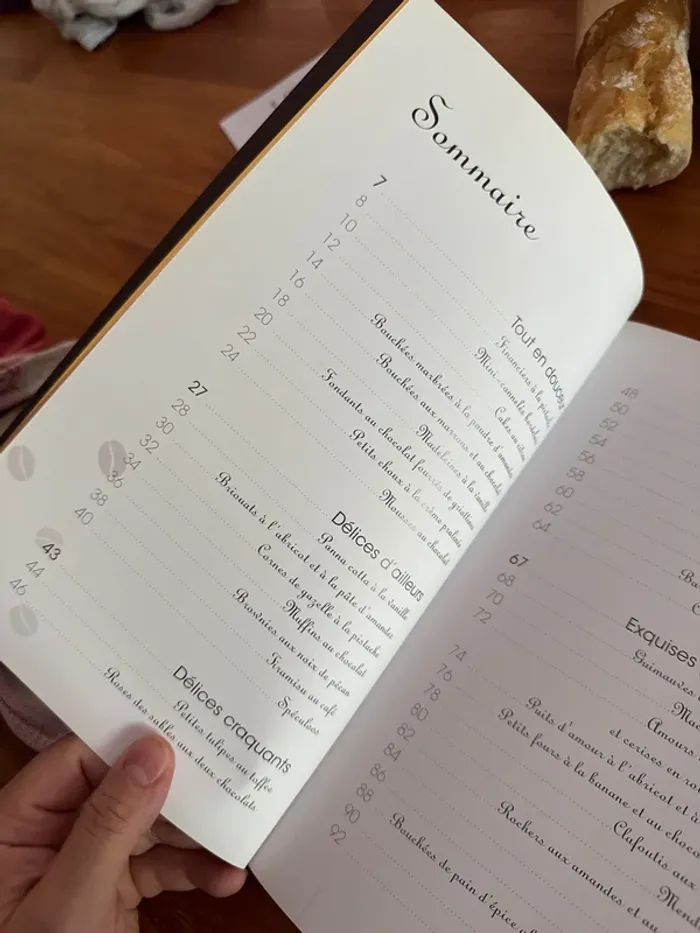 Sommaire
7 Tout en douceur
8 Financiers à la
10 Mini-cannelés
12 Cakes au
14 Bouchées marbrées à la poudre d'amandes
16 Bouchées aux marrons et au chocolat
18 Madeleines à la vanille
20 Fondants au chocolat fourrés de griottines
22 Petits choux à la crème
24 Mousses au chocolat
27 Délices d'ailleurs
28 Panna cotta à la vanille
30 Briouats à l'abricot et à la pâte d'amandes
32 Cornes de gazelle à la pistache
34 Muffins au chocolat
36 Brownies aux noix de pécan
38 Tiramisu au café
40 Spéculoos
43 Délices craquants
44 Petites tulipes au toffee
46 Roses des sables aux deux chocolats
48
50
52
54
56
58
60
62
64
67 Exquises
68 Guimauves
70
72 Amours
et cerises en
74 Puits d'amour à l'abricot et à
76 Petits fours à la banane et au
78 Clafoutis aux
80 Rochers aux amandes et au
82
84 Bouchées de pain d'épice
86
88
90
92